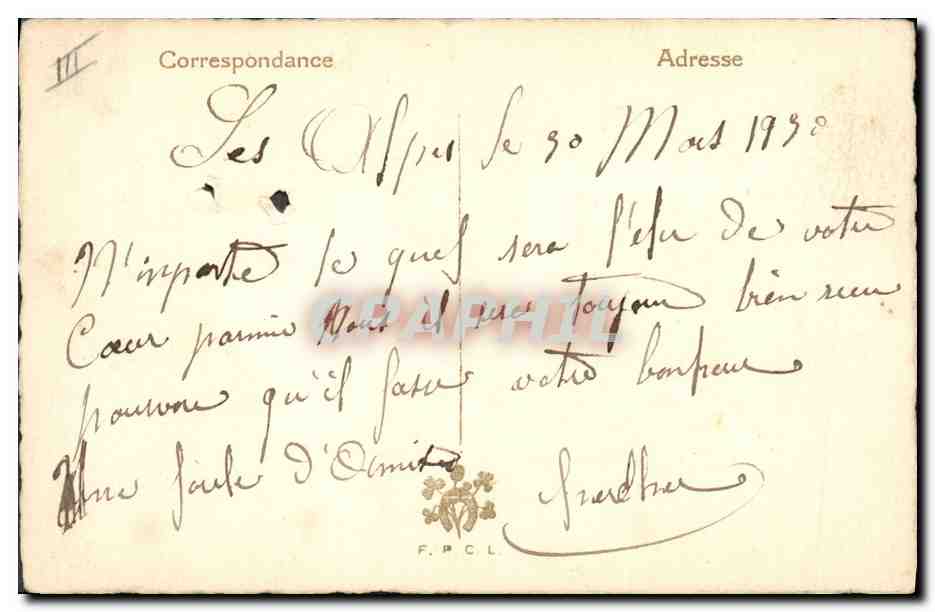 III
Correspondance
Adresse
Les Alpes le 30 Mars 1930
N'inporte le quel sera l'élu de votre
Cœur parmie vous il sera toujour bien reçu
pourvore qu'il fasse votre bonheur
Une foule d'Amitié
F. P. C. L.
CPAPHIL